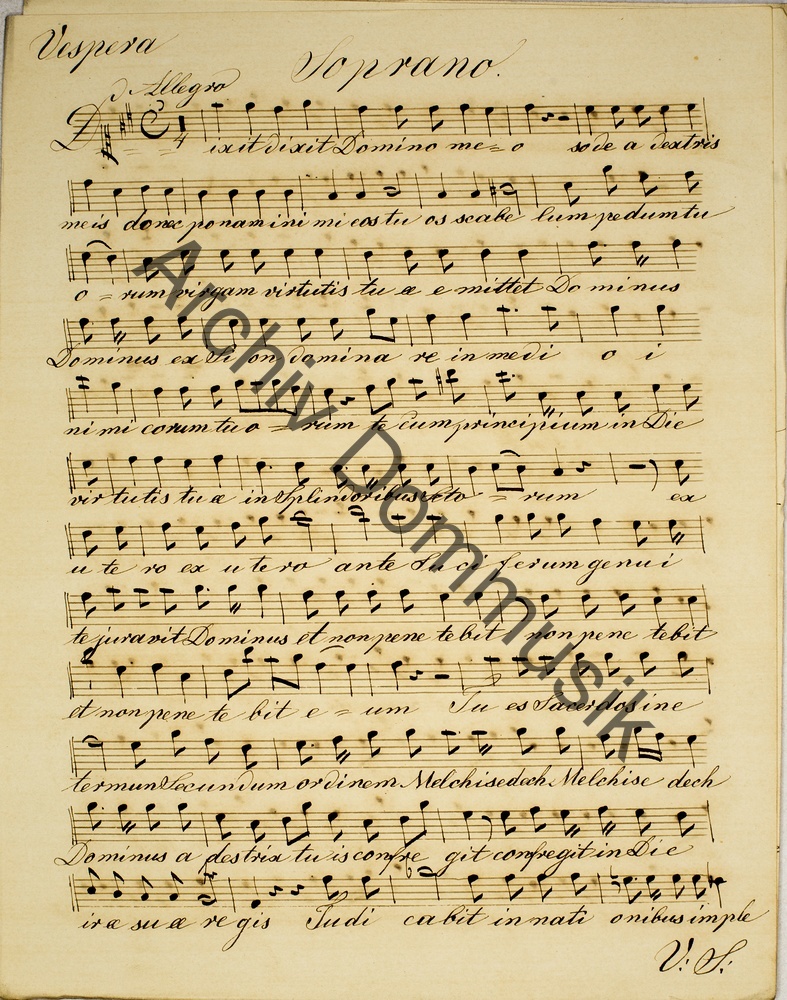 Vespera
Soprano.
Allegro
4
Dixit dixit Domino me=o sede a dextris
meis donec ponam inimicos tuos scabellum pedum tu
o=rum virgam virtutis tuæ emittet Dominus
Dominus ex Sion domina re in medi o i
nimi corum tuo=rum te cum principium in Die
virtutis tuæ in Splendoribus to=rum ex
u te ro ex u te ro ante Lu ci ferum genu i
te juravit Dominus et non pene tebit non pene tebit
et non pene te bit e=um Tu es Sacerdos in e
ternum Secundum ordinem Melchisedech Melchise dech
Dominus a destris tu is confre git confregit in Die
iræ suæ re gis Judi cabit in nati onibus imple
V: S:
Archiv Dommusik